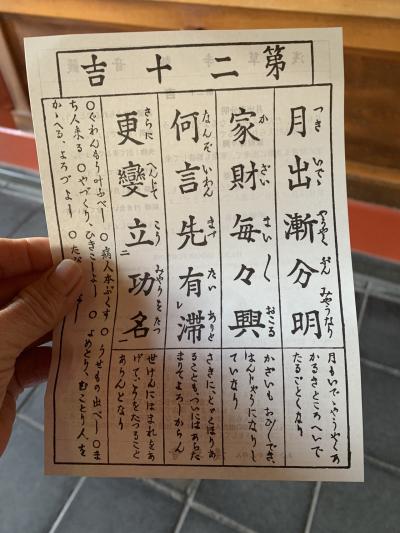 第二十吉
月出漸分明
つき いでゝ やうやく ぶん みやうなり
月もいで、やうやくあ
かるきところへいで
たるごとくなり
家財毎々興
か ざい まい〱 おこる
かざいもおひ〳〵でき、
はんじやうになりし
ていなり
何言先有滞
なんぞ いわん まづ たい ありと
さきにはとゞこほりあ
ることも、ついにはあらた
まりてよろしからん
更變立功名
さらに へんじて こう みやうをたつ
せけんにほまれをあ
げて、こうをたつること
あらんとなり
○ぐわんもう叶ふべし ○病人本ぷくす ○うせもの出べし ○ま
ち人来る ○やづくり、ひきこしよし ○よめとり、むことり、人を
かゝへる、よろづよし ○たび